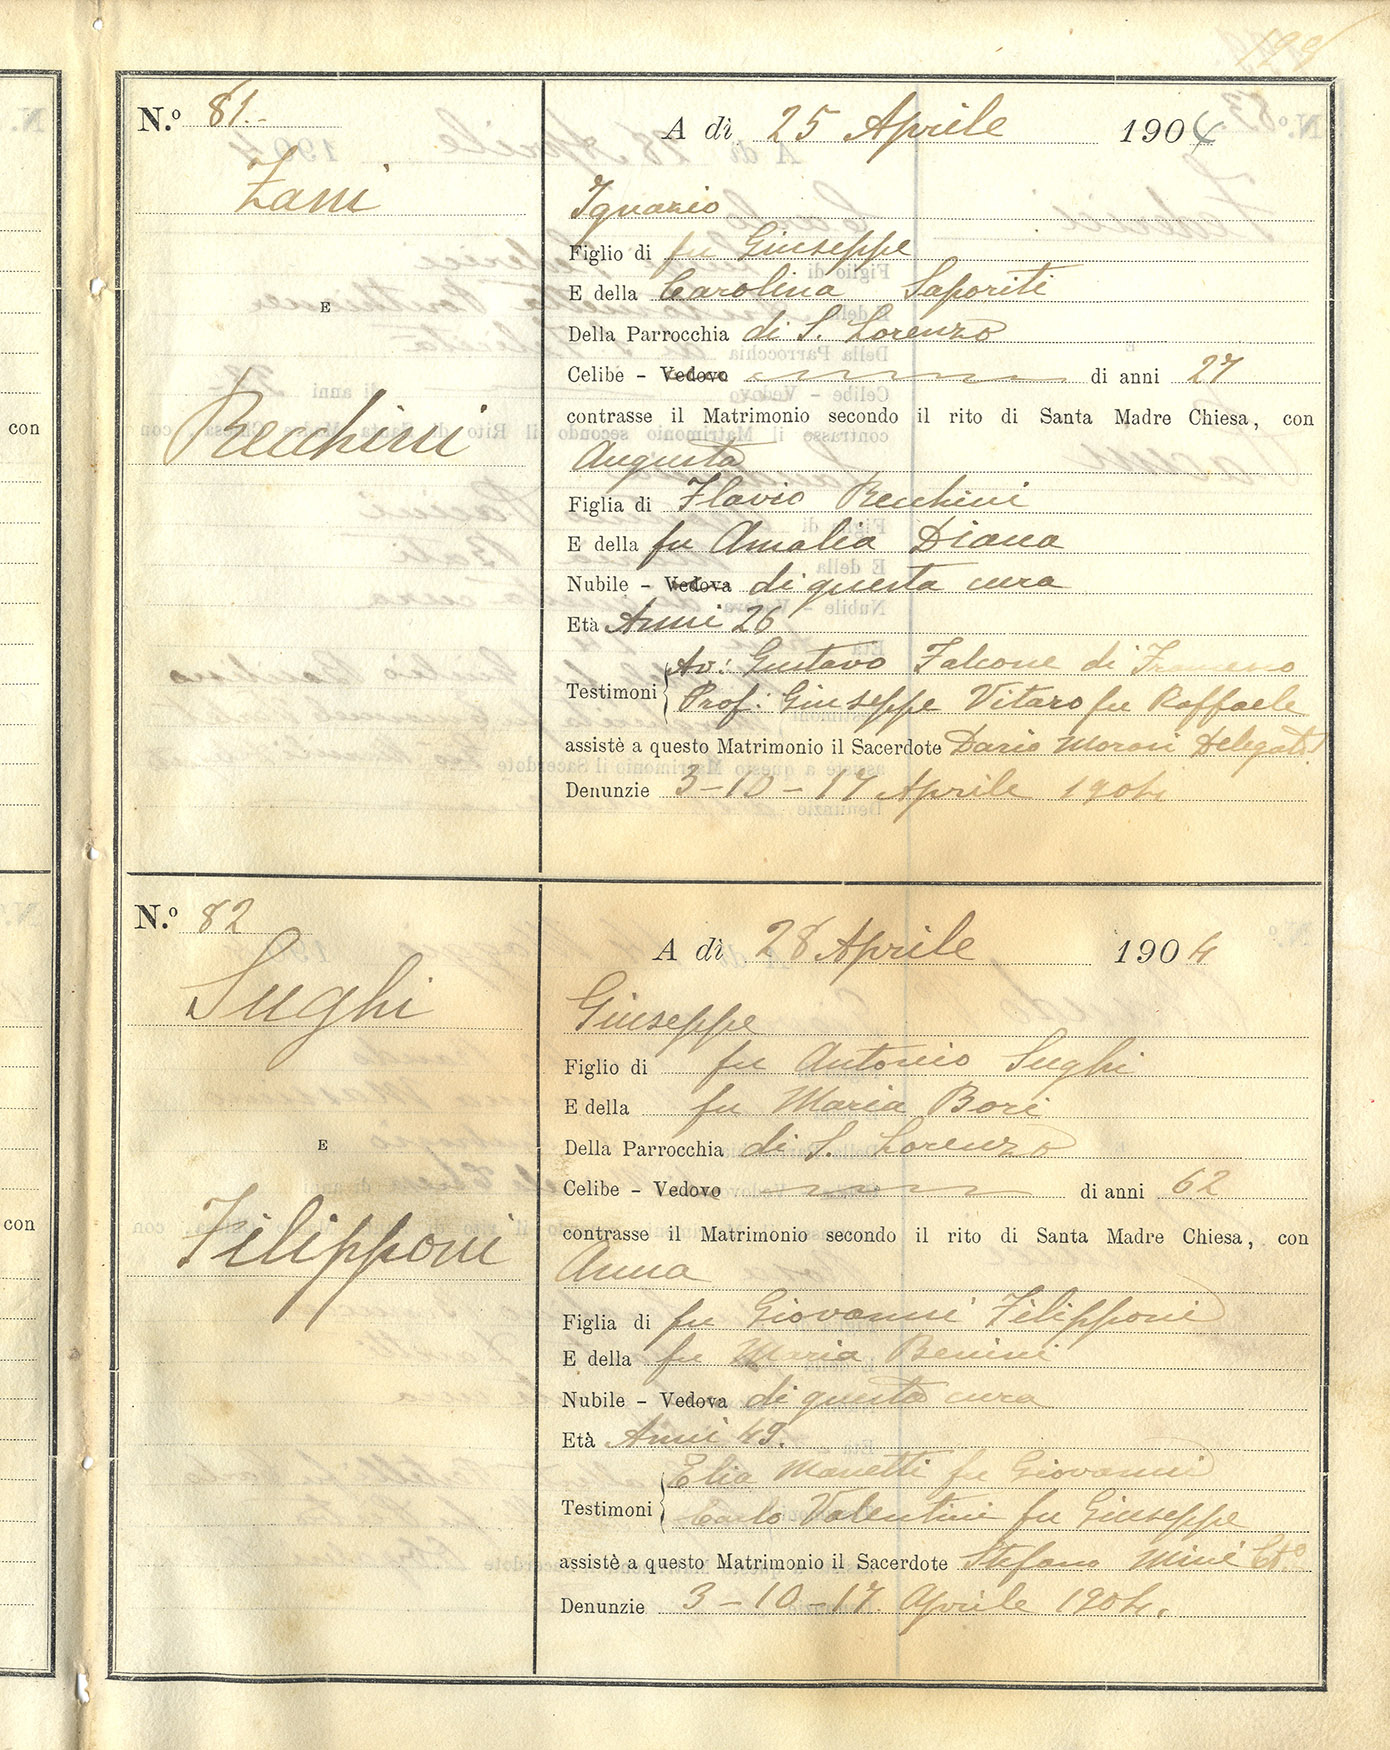 N.º 81.
Zani
E
Recchini
A dì 25 Aprile 1904
Ignazio
Figlio di fu Giuseppe
E della Carolina Saporiti
Della Parrocchia di S. Lorenzo
Celibe – Vedovo di anni 27
contrasse il Matrimonio secondo il rito di Santa Madre Chiesa, con
Augusta
Figlia di Flavio Recchini
E della fu Amalia Diana
Nubile – Vedova di questa cura
Età Anni 26
Testimoni Av: Gustavo Falcone di
Prof: Giuseppe Vitaro fu Raffaele
assistè a questo Matrimonio il Sacerdote Dario Moroni Delegato
Denunzie 3–10–17 Aprile 1904
N.º 82
Sughi
E
Filipponi
A dì 28 Aprile 1904
Giuseppe
Figlio di fu Antonio Sughi
E della fu Maria Bori
Della Parrocchia di S. Lorenzo
Celibe – Vedovo di anni 62
contrasse il Matrimonio secondo il rito di Santa Madre Chiesa, con
Anna
Figlia di fu Giovanni Filipponi
E della fu Maria Benini
Nubile – Vedova di questa cura
Età Anni 49.
Testimoni Elia Manetti fu Giovanni
Carlo Valentini fu Giuseppe
assistè a questo Matrimonio il Sacerdote Stefano Mini
Denunzie 3–10–17 Aprile 1904.
con
con